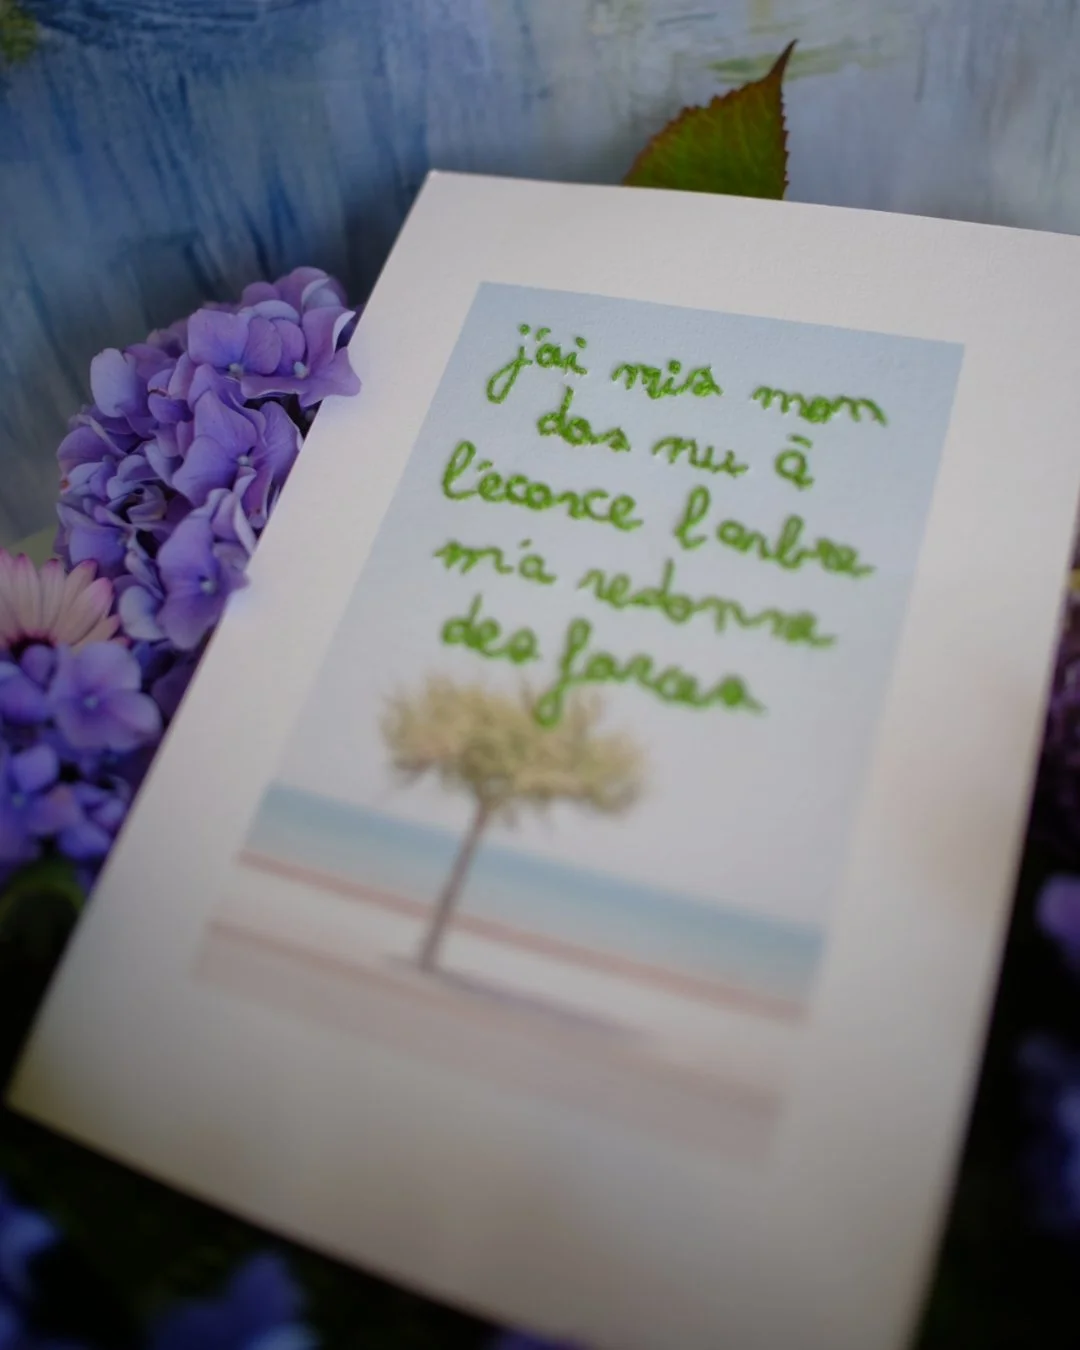 j'ai mis mon
dos nu à
l'écorce l'arbre
m'a redonné
des forces